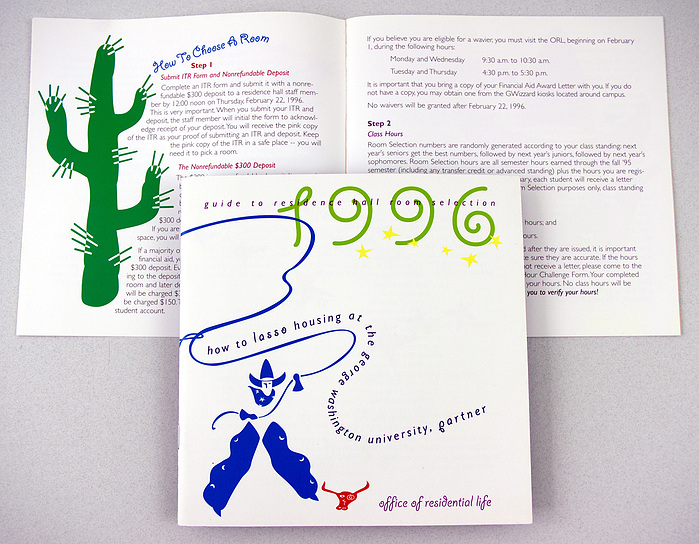 How To Choose A Room
Step 1
Submit ITR Form and Nonrefundable Deposit
Complete an ITR form and submit it with a nonre-
fundable $300 deposit to a residence hall staff mem-
ber by 12:00 noon on Thursday, February 22, 1996.
This is very important. When you submit your ITR and
deposit, the staff member will initial the form to acknowl-
edge receipt of your deposit. You will receive the pink copy
of the ITR as your proof of submitting an ITR and deposit. Keep
the pink copy of the ITR in a safe place -- you will
need it to pick a room.
The Nonrefundable $300 Deposit
$300 d
If you are
space, you will
If a majority o
financial aid, y
$300 deposit. Ev
ing to the deposit
room and later de
will be charged $
be charged $150.
student account.
If you believe you are eligible for a wavier, you must visit the ORL, beginning on February
1, during the following hours:
Monday and Wednesday 9:30 a.m. to 10:30 a.m.
Tuesday and Thursday 4:30 p.m. to 5:30 p.m.
It is important that you bring a copy of your Financial Aid Award Letter with you. If you do
not have a copy, you may obtain one from the GWizzard kiosks located around campus.
No waivers will be granted after February 22, 1996.
Step 2
Class Hours
Room Selection numbers are randomly generated according to your class standing: next
year's seniors get the best numbers, followed by next year's juniors, followed by next year's
sophomores. Room Selection hours are all semester hours earned through the fall '95
semester (including any transfer credit or advanced standing) plus the hours you are regis-
ary, each student will receive a letter
m Selection purposes only, class standing
hours; and
ours.
d after they are issued, it is important
e sure they are accurate. If the hours
not receive a letter, please come to the
Hour Challenge Form. Your completed
your hours. No class hours will be
you to verify your hours!
1996
guide to residence hall room selection
how to lasso housing at the george washington university, partner
office of residential life